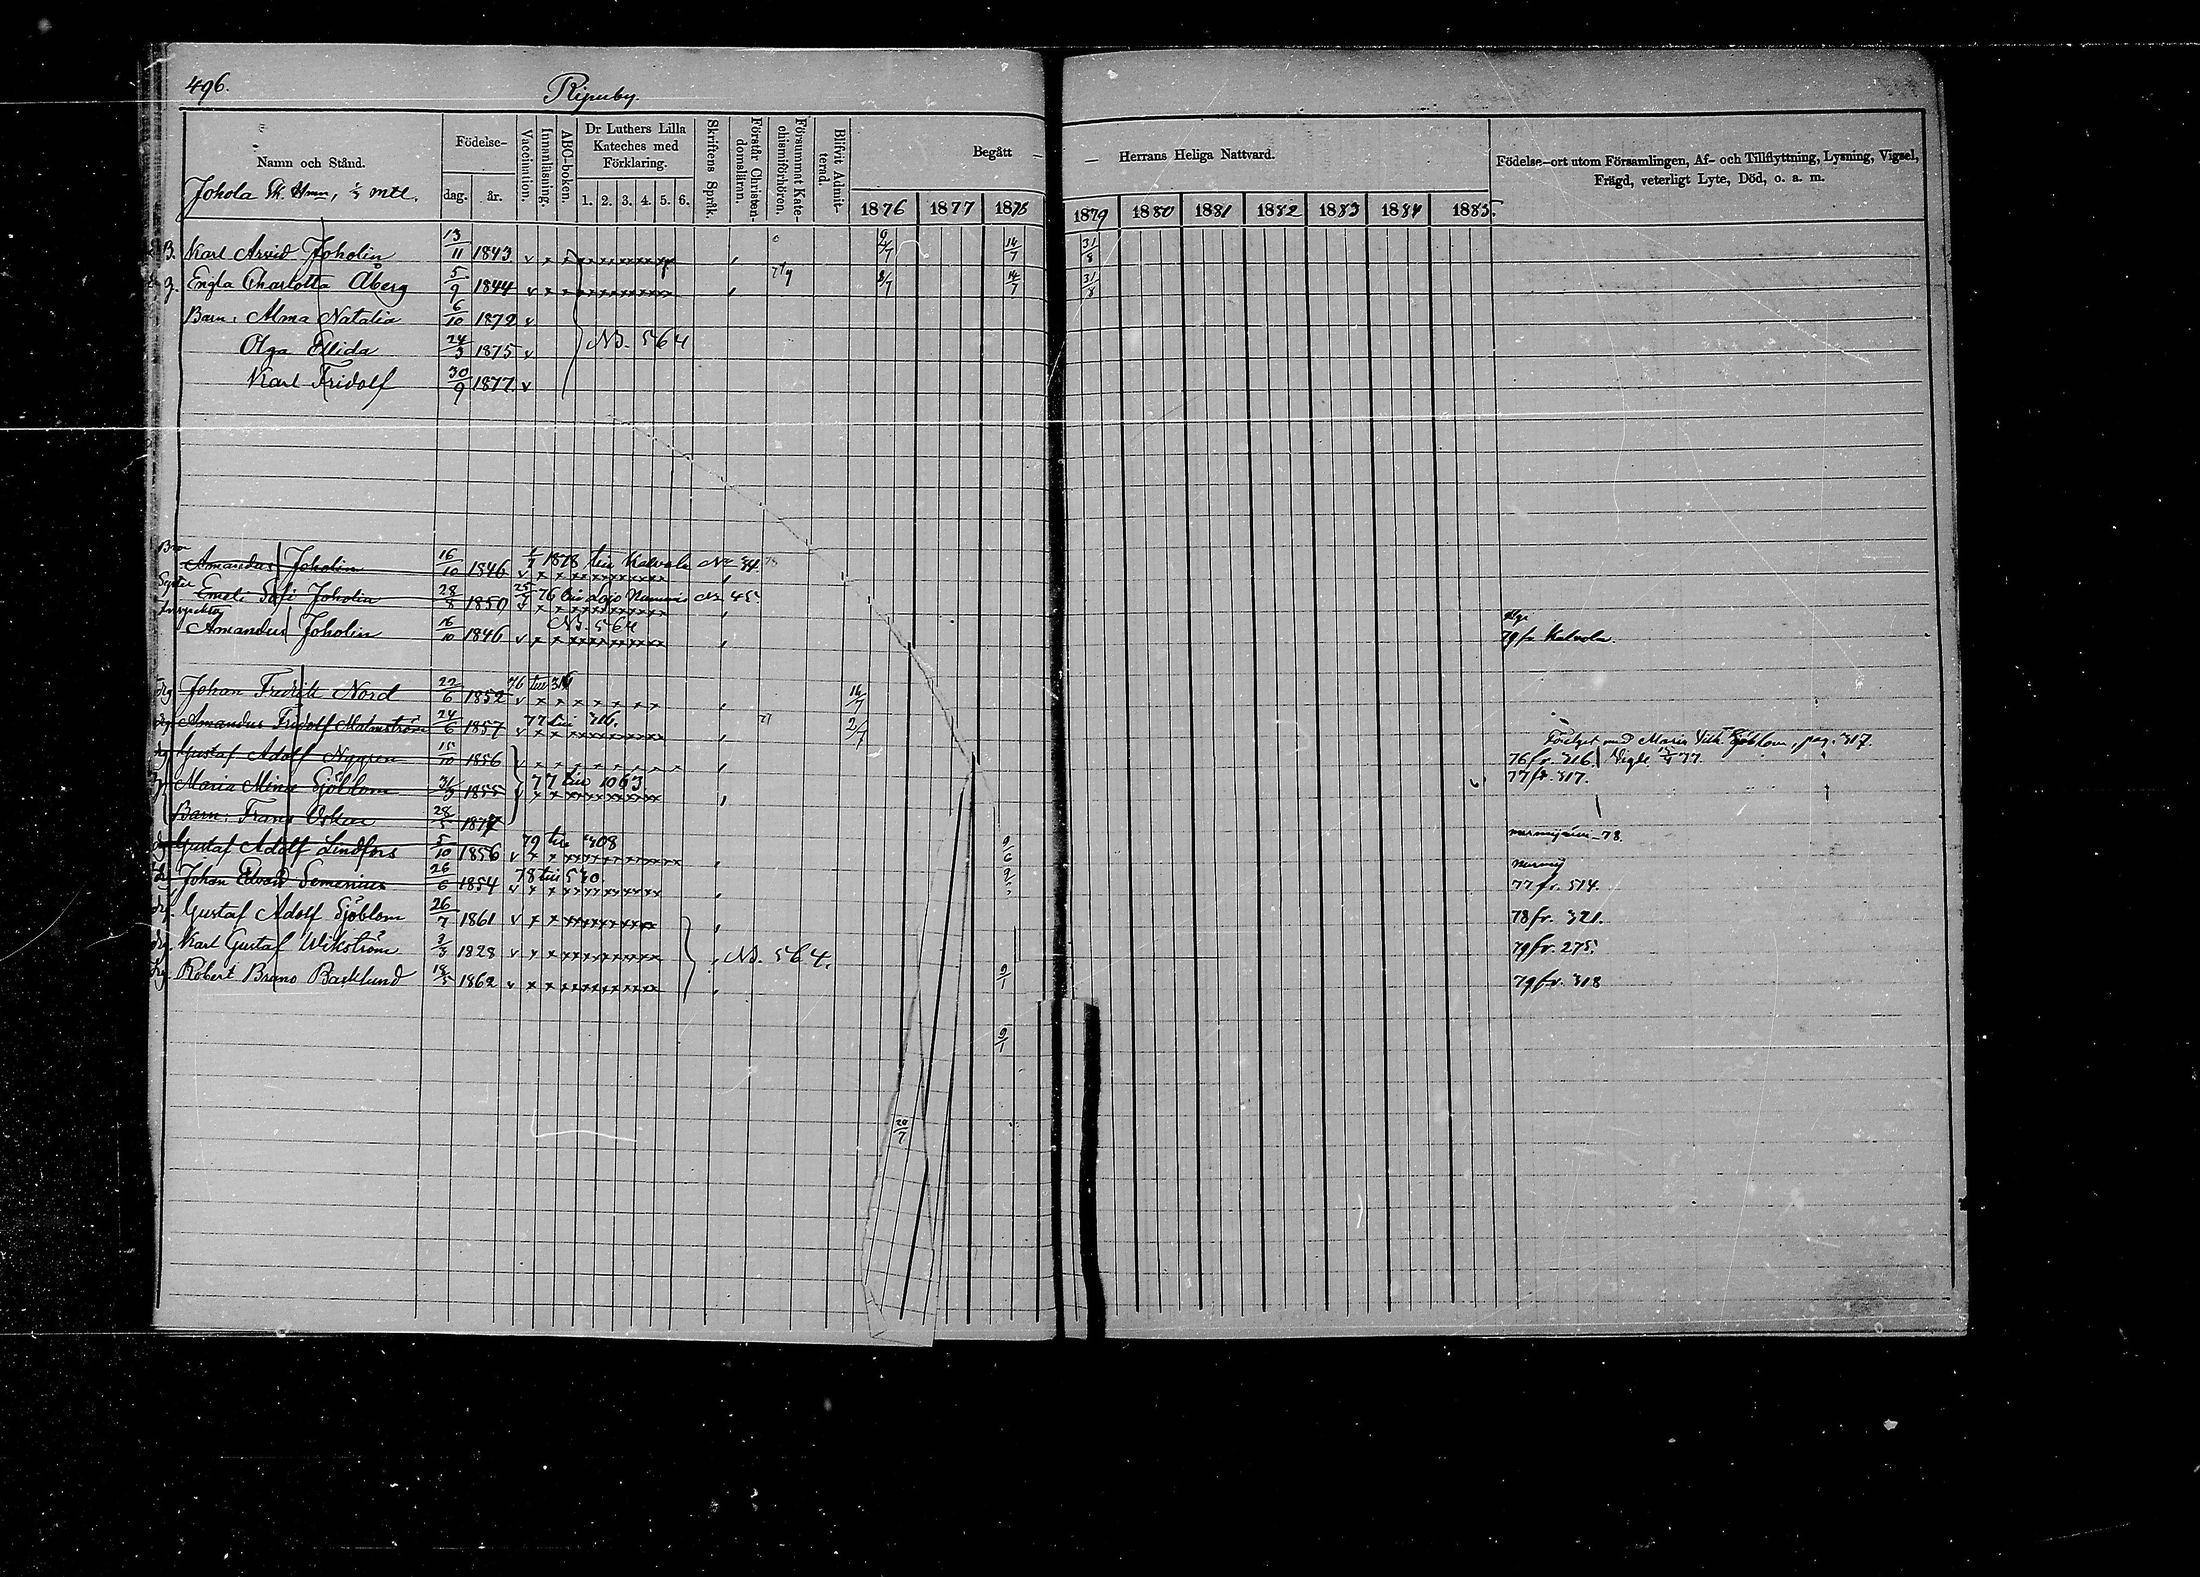 496.
Ripuby.
Namn och Stånd.
Johola
mtl.
Födelse-
dag. år.
Vaccination.
Innanläsning.
ABC-boken.
Dr Luthers Lilla
Kateches med
Förklaring.
1. 2. 3. 4. 5. 6.
Skriftens Språk.
Förstår Christen-
domsläran.
Försummat Kate-
chismiförhören.
Blifvit Admit-
terad.
Begått —
1876 1877 1878
— Herrans Heliga Nattvard.
1879 1880 1881 1882 1883 1884 1885.
Födelse-ort utom Församlingen, Af- och Tillflyttning, Lysning, Vigsel,
Frägd, veterligt Lyte, Död, o. a. m.
B. Karl Arvid Joholin 13/11 1843 14/7 31/8
Engla Charlotta Åberg 5/9 1844 8/7 14/7 31/8
Barn: Alma Natalia 6/10 1872
Olga Ellida 24/3 1875 N.B. 564
Karl Fridolf 30/9 1877
Bror
Amandus Joholin 16/10 1846 1878 till Kalvola No 34.
Syster Emeli Sofi Joholin 28/8 1850 25/ 76 till Lojo Nummis No 45.
Inspektor
Amandus Joholin 16/10 1846 N.B. 564 79 fr Kalvola
Drg Johan Fredrik Nord 22/6 1852 76 till 316 16/7
Drg Amandus Fridolf Malmström 24/6 1857 77 till 316. 2/7
Gustaf Adolf Nygren 15/10 1856 76 fr. 316. Vigde 77.
med Maria Vilh. Sjöblom, pag. 317.
Maria Mina Sjöblom 31/3 1855 77 till 1063 77 fr. 317.
Barn: Frans Oskar 28/5 1877
Gustaf Adolf Lindfors 5/10 1856 79 till 308 9/6
78.
Johan Edvard Semenius 26/6 1854 78 till 530. 77 fr. 514.
Drg. Gustaf Adolf Sjöblom 26/7 1861 78 fr. 321.
Drg. Karl Gustaf Wikström 3/3 1828 N.B. 564. 79 fr. 275.
Drg. Robert Bruno Backlund 18/5 1862 9/1 79 fr. 318
9/1
20/7